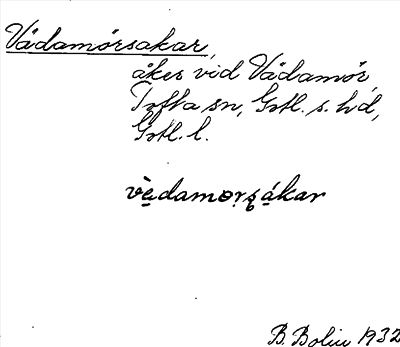 Vádamórsakar,
åker vid Vádamór,
Tofta sn, Gotl. s. hd,
Gotl. l.
vȁ̱damo̱rʂá̱kar
B. Bolin 1932